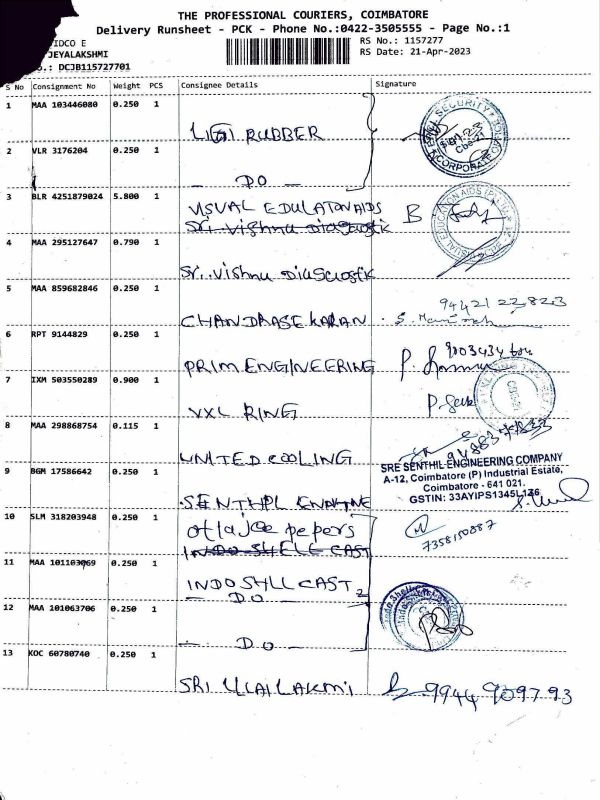 THE PROFESSIONAL COURIERS, COIMBATORE
Delivery Runsheet - PCK - Phone No.:0422-3505555 - Page No.:1
IDCO E
JEYALAKSHMI
.: DCJB115727701
RS No.: 1157277
RS Date: 21-Apr-2023
S No Consignment No Weight PCS Consignee Details Signature
1 MAA 103446080 0.250 1
LIGI RUBBER
2 VLR 3176204 0.250 1
- DO -
3 BLR 4251879024 5.800 1
VISUAL EDULATON AIDS B
Sri. Vishnu Diagnostik
4 MAA 295127647 0.790 1
Sri. Vishnu Diagnostik
5 MAA 859682846 0.250 1
94421 22823
CHANDRASEKARAN
6 RPT 9144829 0.250 1
PRIM ENGINEERING
7 IXM 503550289 0.900 1
VXL RING
8 MAA 298868754 0.115 1
UNITED COOLING
SRE SENTHIL ENGINEERING COMPANY
A-12, Coimbatore (P) Industrial Estate,
Coimbatore - 641 021.
GSTIN: 33AYIPS1345L1Z6
9 BGM 17586642 0.250 1
10 SLM 318203948 0.250 1
INDO SHELL CAST
7358150887
11 MAA 101103069 0.250 1
INDO SHLL CAST
- DO -
12 MAA 101063706 0.250 1
- DO -
13 KOC 60780740 0.250 1
SRI
9944909793